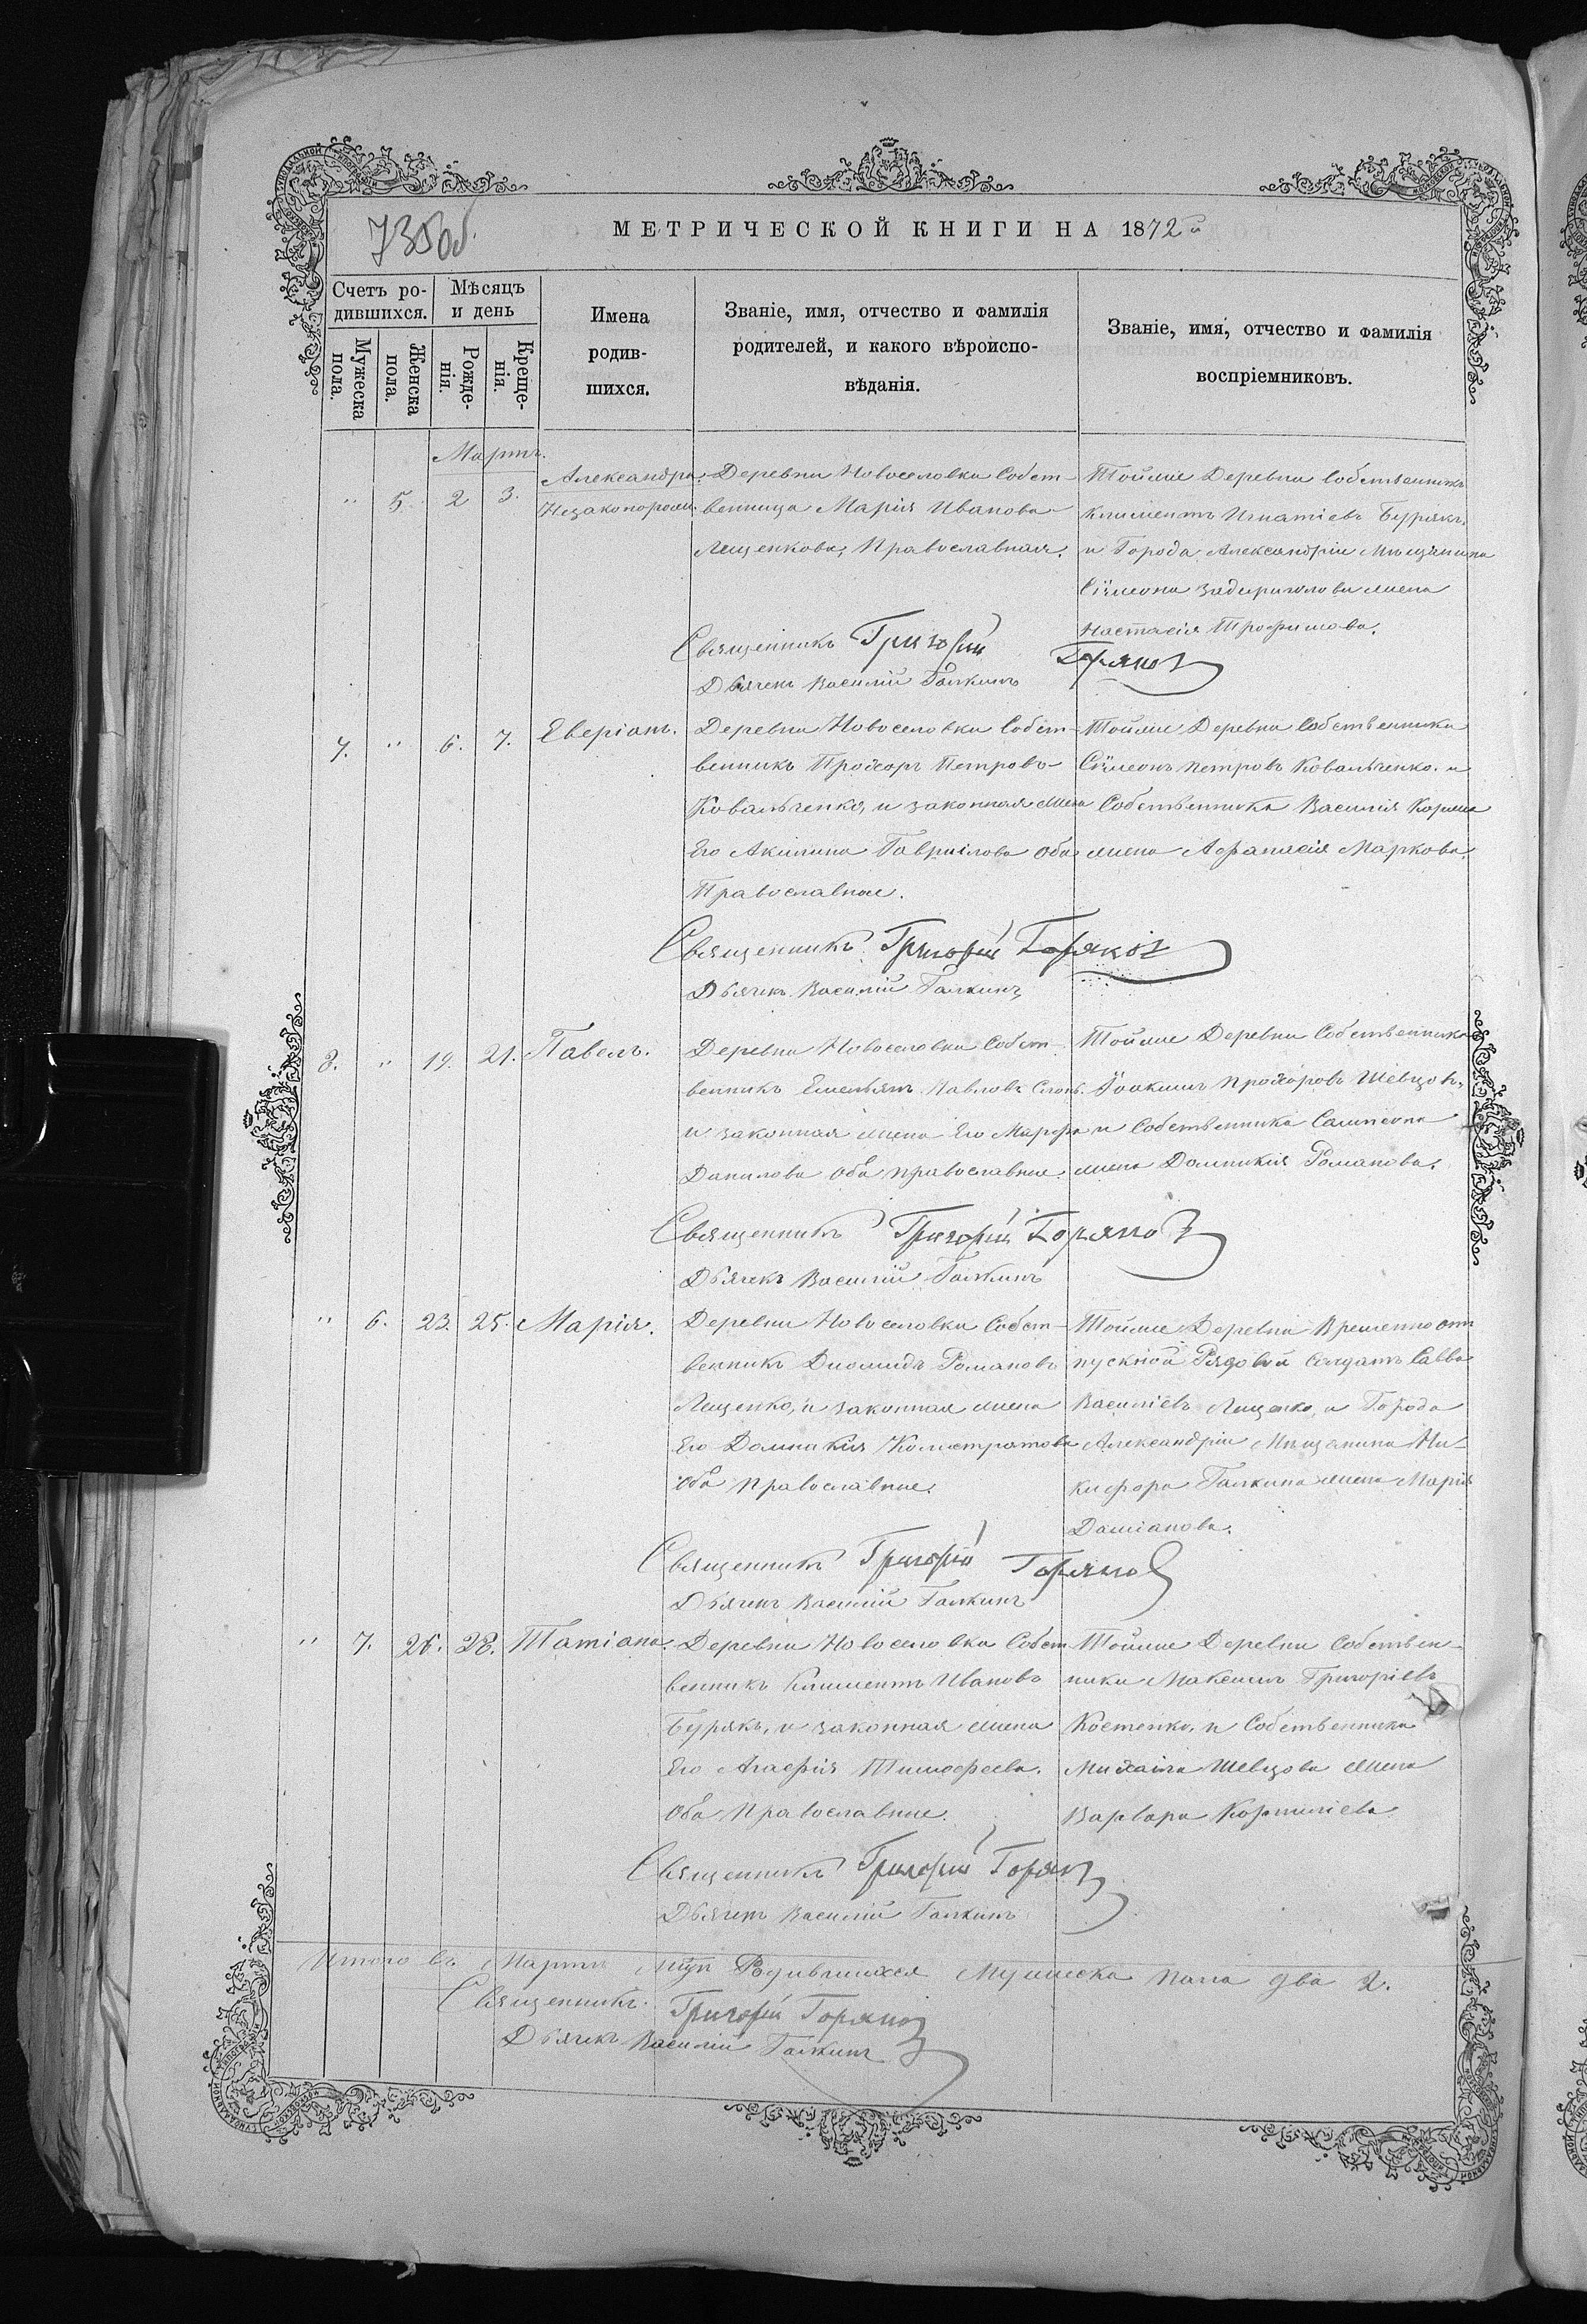 735 об.
МЕТРИЧЕСКОЙ КНИГИ НА 1872й
Счетъ ро-
дившихся.
Мѣсяцъ
и день
Имена
родив-
шихся.
Званіе, имя, отчество и фамилія
родителей, и какого вѣроиспо-
вѣданія.
Званіе, имя, отчество и фамилія
воспріемниковъ.
Мужеска
пола.
Женска
пола.
Рожде-
нія.
Креще-
нія.
Мартъ.
" 5. 2 3. Александра.
Незаконорожд.
Деревни Новоселовки Собст-
венница Марія Иванова
Лещенкова, Православная.
Тойже Деревни собственникъ
Климентъ Игнатіевъ Бурякъ,
и Города Александріи Мѣщанина
Сѵмеона Задериголова жена
Настасія Трофимова.
Священникъ Григорій Горяновъ
Дьячекъ Василій Галкинъ
7. " 6. 7. Еверіанъ.
Деревни Новоселовки Собст-
венникъ Прохоръ Петровъ
Ковальченко, и законная жена
Его Акилина Гавриілова Оба
Православные.
Тойже Деревни Собственники
Сѵмеонъ Петровъ Ковальченко. и
Собственника Василія Коржа
жена Афанасія Маркова.
Священникъ Григорій Горяновъ
Дьячекъ Василій Галкинъ
8. " 19. 21. Павелъ.
Деревни Новоселовки Собст-
венникъ Емельянъ Павловъ
и законная жена Его Марфа
Данилова Оба православные.
Тойже Деревни Собственника
Іоакимъ Прохоровъ Шевцовъ,
и Собственника Сампсона
жена Домникія Романова.
Священникъ Григорій Горяновъ
Дьячекъ Василій Галкинъ
" 6. 23. 25. Марія.
Деревни Новоселовки Собст-
венникъ Диомидъ Романовъ
Лещенко, и законная жена
Его Домникия Калистратова
Оба православные.
Тойже Деревни Временно от
пускной Рядовой Солдатъ Савва
Василіевъ Лещенко, и Города
Александріи Мѣщанина Ни-
кифора Галкина жена Марія
Даміанова.
Священникъ Григорій Горяновъ
Дьячекъ Василій Галкинъ
" 7. 26. 28. Татіана.
Деревни Новоселовки Собст
венникъ Климентъ Ивановъ
Бурякъ, и законная жена
Его Агафія Тимофеева.
Оба Православные.
Тойже Деревни Собствен-
ники Максимъ Григоріевъ
Костенко, и Собственника
Михаила Шевцова жена
Варвара Корниліева.
Священникъ Григорій Горяновъ
Дьячекъ Василій Галкинъ
Итого въ Мартѣ м-цѣ Родившихся Мужеска пола два 2.
Священникъ Григорій Горяновъ
Дьячекъ Василій Галкинъ